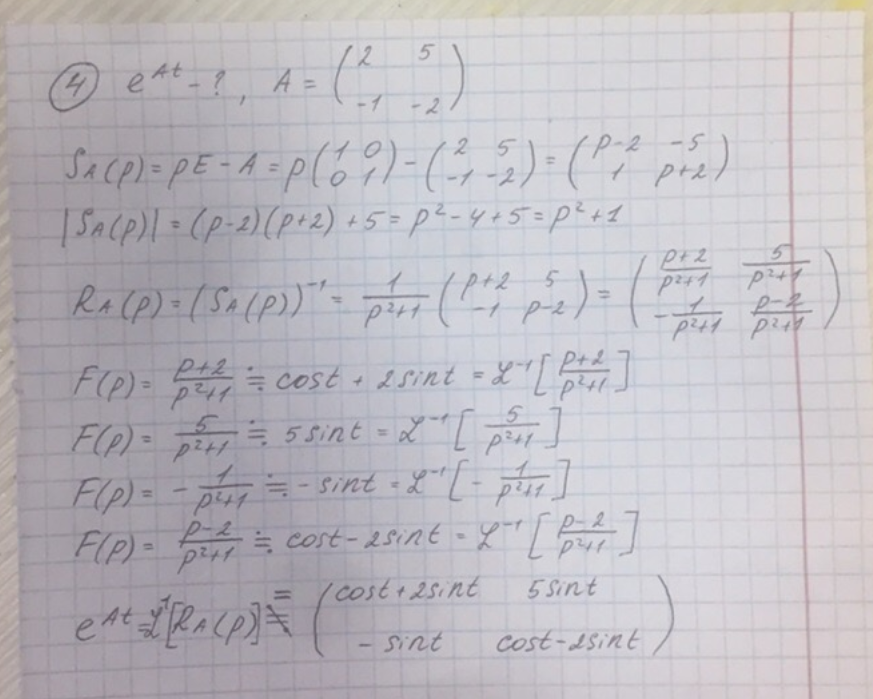 ④ e^{At} - ?, A = \begin{pmatrix} 2 & 5 \\ -1 & -2 \end{pmatrix}
S_A(p) = pE - A = p\begin{pmatrix} 1 & 0 \\ 0 & 1 \end{pmatrix} - \begin{pmatrix} 2 & 5 \\ -1 & -2 \end{pmatrix} = \begin{pmatrix} p-2 & -5 \\ 1 & p+2 \end{pmatrix}
|S_A(p)| = (p-2)(p+2) + 5 = p^2 - 4 + 5 = p^2 + 1
R_A(p) = (S_A(p))^{-1} = \frac{1}{p^2+1} \begin{pmatrix} p+2 & 5 \\ -1 & p-2 \end{pmatrix} = \begin{pmatrix} \frac{p+2}{p^2+1} & \frac{5}{p^2+1} \\ -\frac{1}{p^2+1} & \frac{p-2}{p^2+1} \end{pmatrix}
F(p) = \frac{p+2}{p^2+1} ≓ cost + 2sint = ℒ^{-1}[\frac{p+2}{p^2+1}]
F(p) = \frac{5}{p^2+1} ≓ 5sint = ℒ^{-1}[\frac{5}{p^2+1}]
F(p) = -\frac{1}{p^2+1} ≓ -sint = ℒ^{-1}[-\frac{1}{p^2+1}]
F(p) = \frac{p-2}{p^2+1} ≓ cost - 2sint = ℒ^{-1}[\frac{p-2}{p^2+1}]
e^{At} = ℒ^{-1}[R_A(p)] = \begin{pmatrix} cost + 2sint & 5sint \\ -sint & cost - 2sint \end{pmatrix}